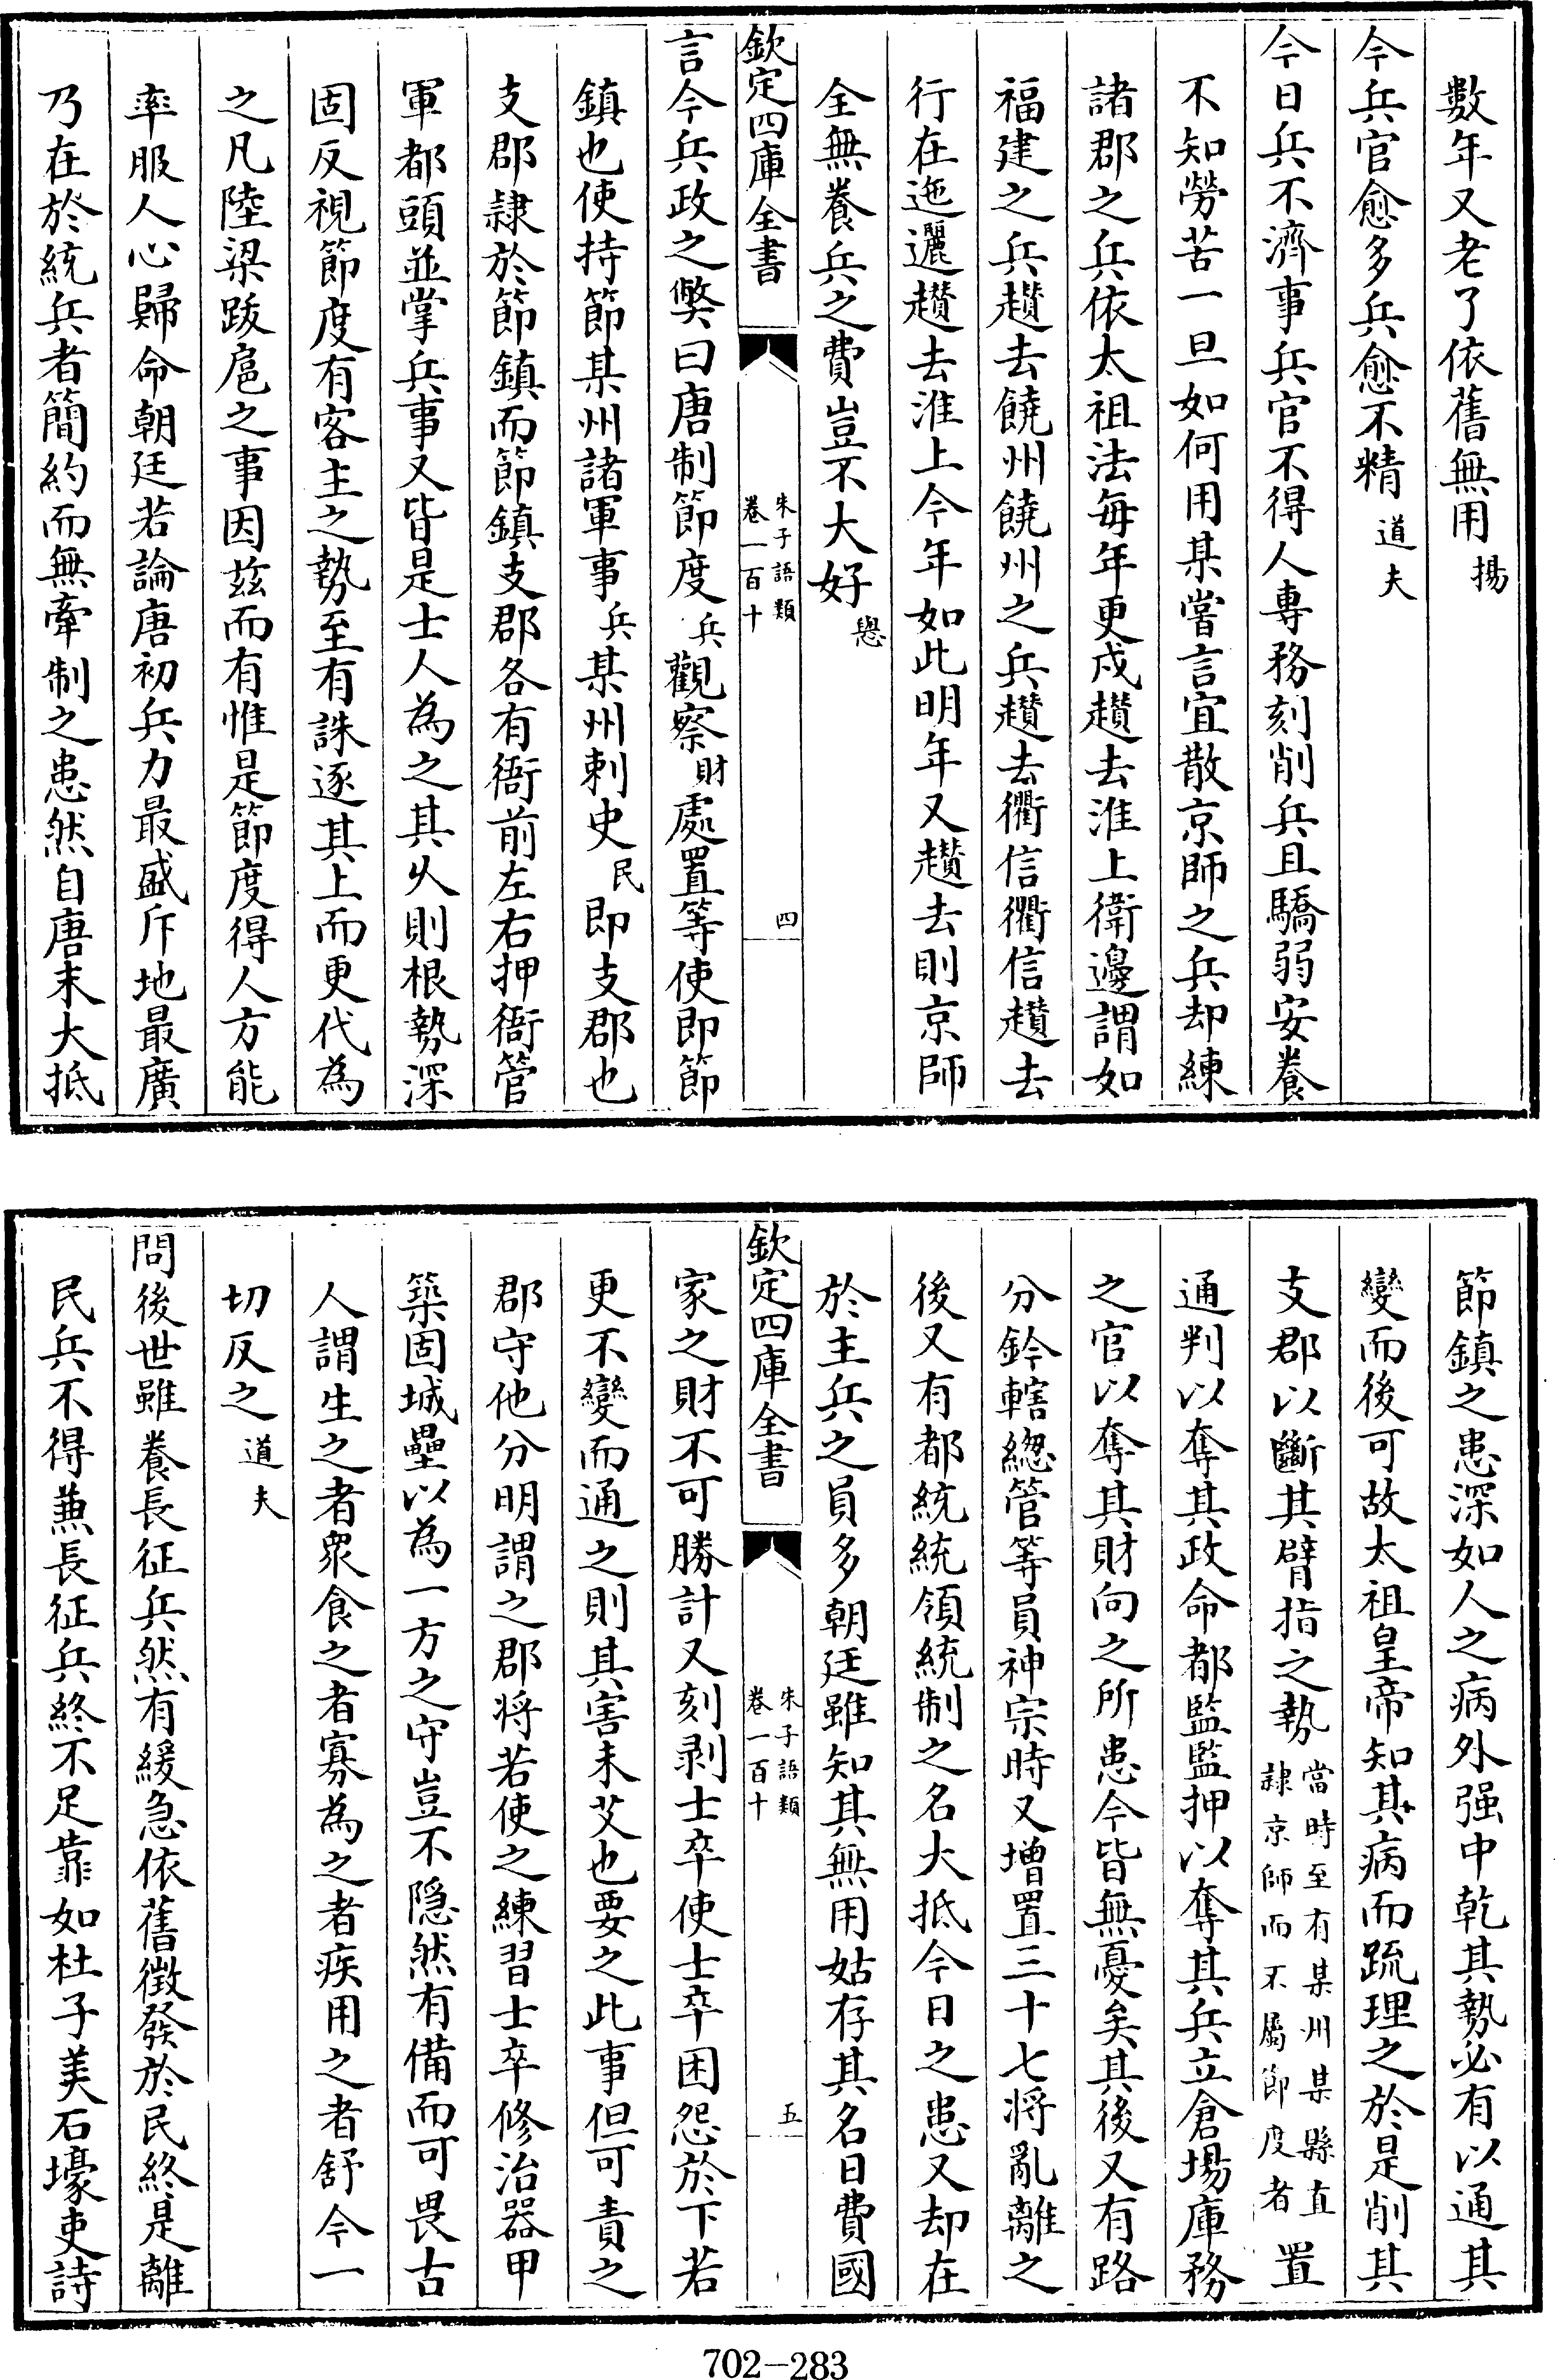 數年又老了依舊無用揚
今兵官愈多兵愈不精道夫
今日兵不濟事兵官不得人專務刻削兵且驕弱安養
不知勞苦一旦如何用某嘗言宜散京師之兵却練
諸郡之兵依太祖法每年更戍趲去淮上衛邊謂如
福建之兵趲去饒州饒州之兵趲去衢信衢信趲去
行在迤邐趲去淮上今年如此明年又趲去則京師
全無養兵之費豈不大好㦛
欽定四庫全書
朱子語類
卷一百十
四
言今兵政之獘曰唐制節度兵觀察財處置等使即節
鎮也使持節某州諸軍事兵某州刺史民即支郡也
支郡隷於節鎮而節鎮支郡各有衙前左右押衙管
軍都頭並掌兵事又皆是士人為之其乆則根勢深
固反視節度有客主之勢至有誅逐其上而更代為
之凡陸梁跋扈之事因兹而有惟是節度得人方能
率服人心歸命朝廷若論唐初兵力最盛斥地最廣
乃在於統兵者簡約而無牽制之患然自唐末大抵
節鎮之患深如人之病外强中乾其勢必有以通其
變而後可故太祖皇帝知其病而疏理之於是削其
支郡以斷其臂指之勢當時至有某州某縣直隷京師而不屬節度者置
通判以奪其政命都監監押以奪其兵立倉場庫務
之官以奪其財向之所患今皆無憂矣其後又有路
分鈐轄緫管等員神宗時又增置三十七將亂離之
後又有都統統領統制之名大抵今日之患又却在
於主兵之員多朝廷雖知其無用姑存其名日費國
欽定四庫全書
朱子語類
卷一百十
五
家之財不可勝計又刻剥士卒使士卒困怨於下若
更不變而通之則其害未艾也要之此事但可責之
郡守他分明謂之郡將若使之練習士卒修治器甲
築固城壘以為一方之守豈不隱然有備而可畏古
人謂生之者衆食之者寡為之者疾用之者舒今一
切反之道夫
問後世雖養長征兵然有緩急依舊徵發於民終是離
民兵不得兼長征兵終不足靠如杜子美石壕吏詩
702-283